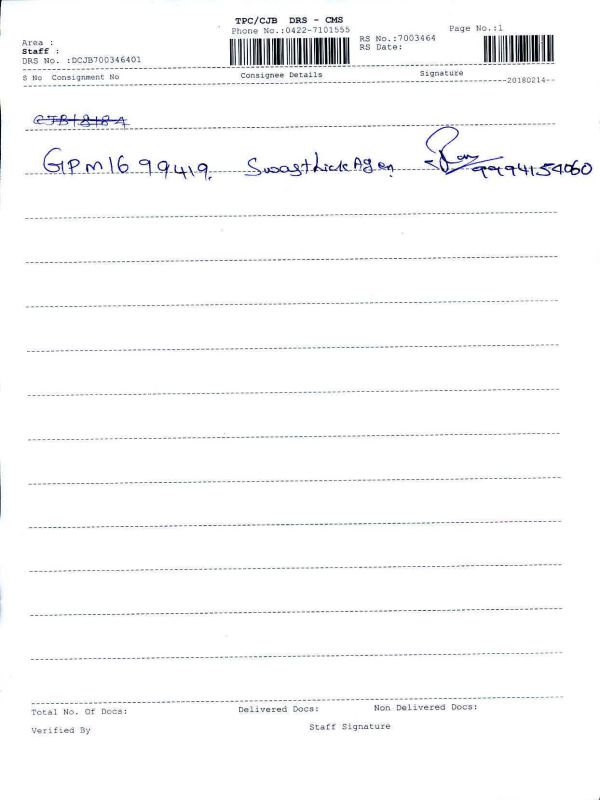 TPC/CJB DRS - CMS
Phone No.:0422-7101555
Page No.:1
Area :
RS No.:7003464
Staff :
RS Date:
DRS No. :DCJB700346401
S No Consignment No Consignee Details Signature
20180214
CJB1818A
GPM1699419. Swasthick Agen. 9994154060
Total No. Of Docs: Delivered Docs: Non Delivered Docs:
Verified By Staff Signature